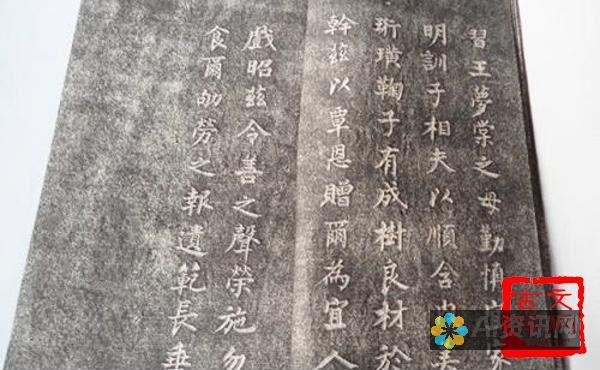 習王夢棠之母勤慎
明訓子相夫以順含美
珩璜鞠子有成樹良材於
幹玆以覃恩贈爾為宜人
戲昭玆令善之聲榮施勿
食爾劬勞之報遺範長垂
古文
资讯网